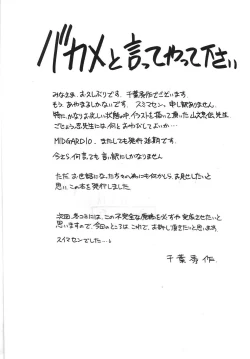 バカメと言ってやって下さい
みなさま、お久しぶりです。千葉秀作でございます。
もう、あやまるしかないです。スミマセン。申し訳ありません。
特に、かなりお忙しい状態の中イラストを描いて頂いた山文京伝先生
ごじょう忍先生には何とおわびしてよいか…
MIDGARD10、またしても発行延期です。
今さら何を言っても言い訳にしかなりません
ただ、お世話になった方々の為に
思いこの本を発行しました
次回、冬コミには、この不完全な原稿を必ずや完成させたいと
思いますので、今回のところはこれで、お許し頂きたいと思います。
スイマセンでした…。
千葉秀作